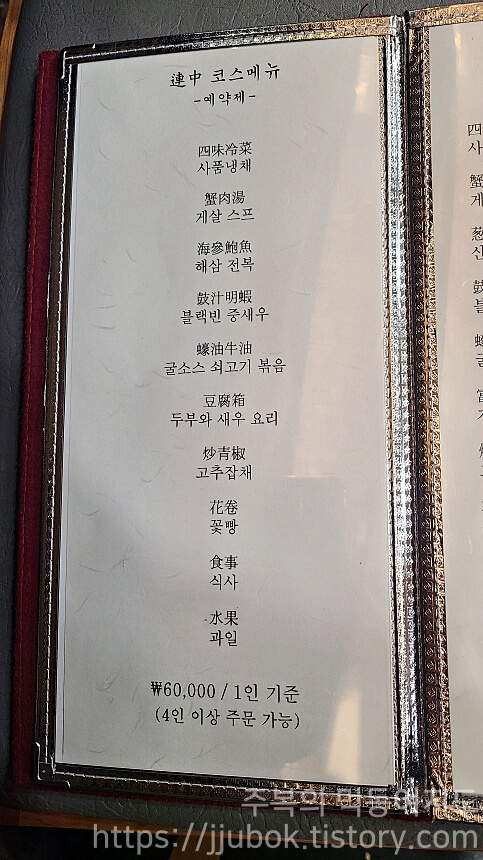 連中 코스메뉴
-예약제-
四味冷菜
사품냉채
蟹肉湯
게살 스프
海參鮑魚
해삼 전복
鼓汁明蝦
블랙빈 중새우
蠔油牛油
굴소스 쇠고기 볶음
豆腐箱
두부와 새우 요리
炒青椒
고추잡채
花卷
꽃빵
食事
식사
水果
과일
₩60,000 / 1인 기준
(4인 이상 주문 가능)
https://jjubok.tistory.com